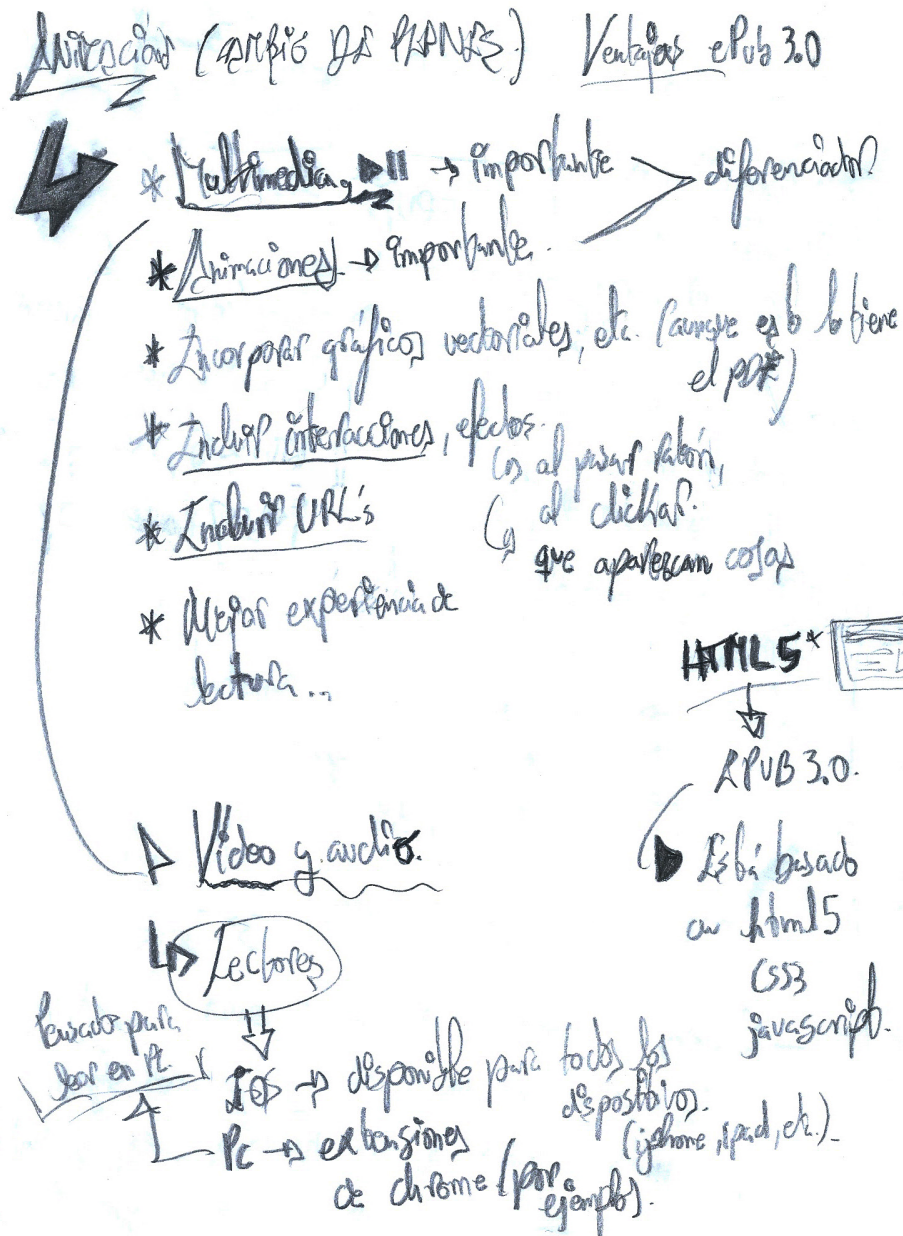 Animación (cambio de planes.) Ventajas ePub 3.0
* Multimedia, → importante
diferenciador.
* Animaciones → importante.
* Incorporar gráficos vectoriales, etc. (aunque esto lo tiene
el PDF)
* Incluir interacciones, efectos.
al pasar ratón,
al clickar.
que aparezcan cosas
* Incluir URL's
* Mejor experiencia de
lectura...
HTML5*
EPUB 3.0.
Está basado
en html5
CSS3
javascript.
Vídeo y audio.
Lectores
Pensado para
leer en PC.
IOS → disponible para todos los
dispositivos.
(iphone, ipad, etc.)
Pc → extensiones
de chrome (por
ejemplo).